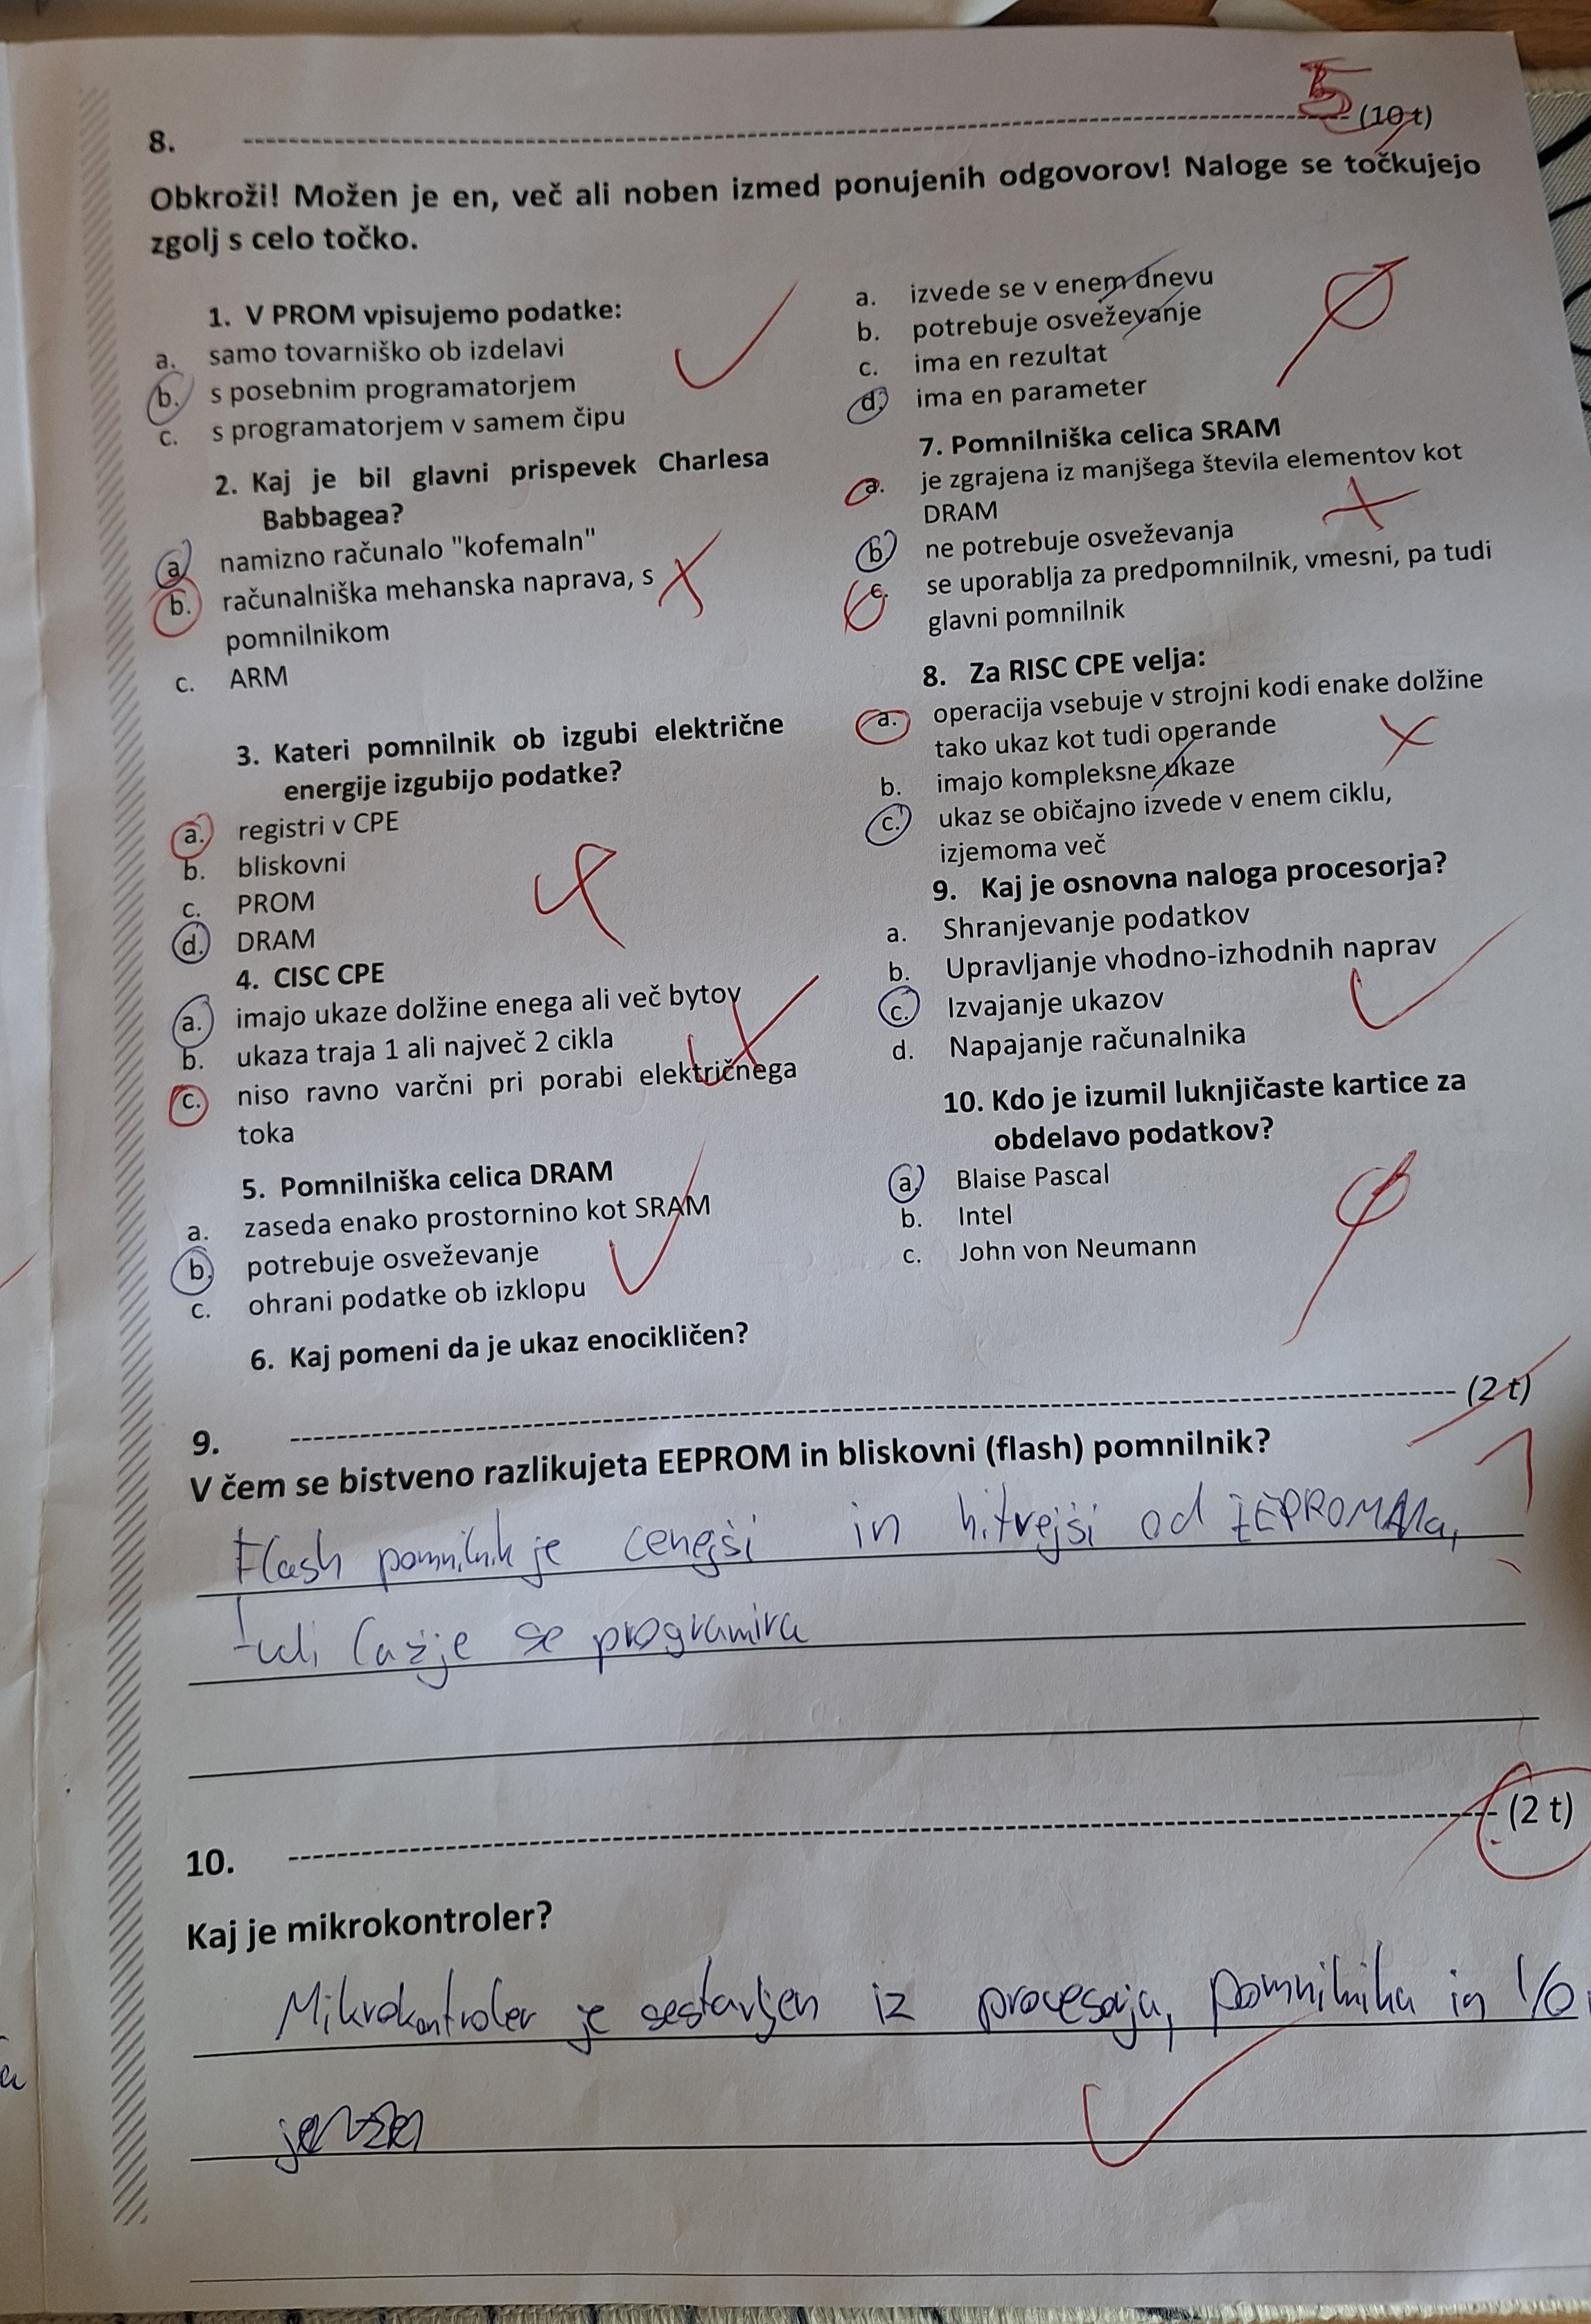 8. (10 t)
5
Obkroži! Možen je en, več ali noben izmed ponujenih odgovorov! Naloge se točkujejo
zgolj s celo točko.
1. V PROM vpisujemo podatke:
a. samo tovarniško ob izdelavi
b. s posebnim programatorjem
c. s programatorjem v samem čipu
2. Kaj je bil glavni prispevek Charlesa
Babbagea?
a. namizno računalo "kofemaln"
b. računalniška mehanska naprava, s
pomnilnikom
c. ARM
3. Kateri pomnilnik ob izgubi električne
energije izgubijo podatke?
a. registri v CPE
b. bliskovni
c. PROM
d. DRAM
4. CISC CPE
a. imajo ukaze dolžine enega ali več bytov
b. ukaza traja 1 ali največ 2 cikla
c. niso ravno varčni pri porabi električnega
toka
5. Pomnilniška celica DRAM
a. zaseda enako prostornino kot SRAM
b. potrebuje osveževanje
c. ohrani podatke ob izklopu
6. Kaj pomeni da je ukaz enocikličen?
a. izvede se v enem dnevu
b. potrebuje osveževanje
c. ima en rezultat
d. ima en parameter
7. Pomnilniška celica SRAM
a. je zgrajena iz manjšega števila elementov kot
DRAM
b. ne potrebuje osveževanja
c. se uporablja za predpomnilnik, vmesni, pa tudi
glavni pomnilnik
8. Za RISC CPE velja:
a. operacija vsebuje v strojni kodi enake dolžine
tako ukaz kot tudi operande
b. imajo kompleksne ukaze
c. ukaz se običajno izvede v enem ciklu,
izjemoma več
9. Kaj je osnovna naloga procesorja?
a. Shranjevanje podatkov
b. Upravljanje vhodno-izhodnih naprav
c. Izvajanje ukazov
d. Napajanje računalnika
10. Kdo je izumil luknjičaste kartice za
obdelavo podatkov?
a. Blaise Pascal
b. Intel
c. John von Neumann
9. (2 t)
1
V čem se bistveno razlikujeta EEPROM in bliskovni (flash) pomnilnik?
Flash pomnilnik je cenejši in hitrejši od EEPROMA,
tudi lažje se programira
10. (2 t)
Kaj je mikrokontroler?
Mikrokontroler je sestavljen iz procesorja, pomnilnika in I/O